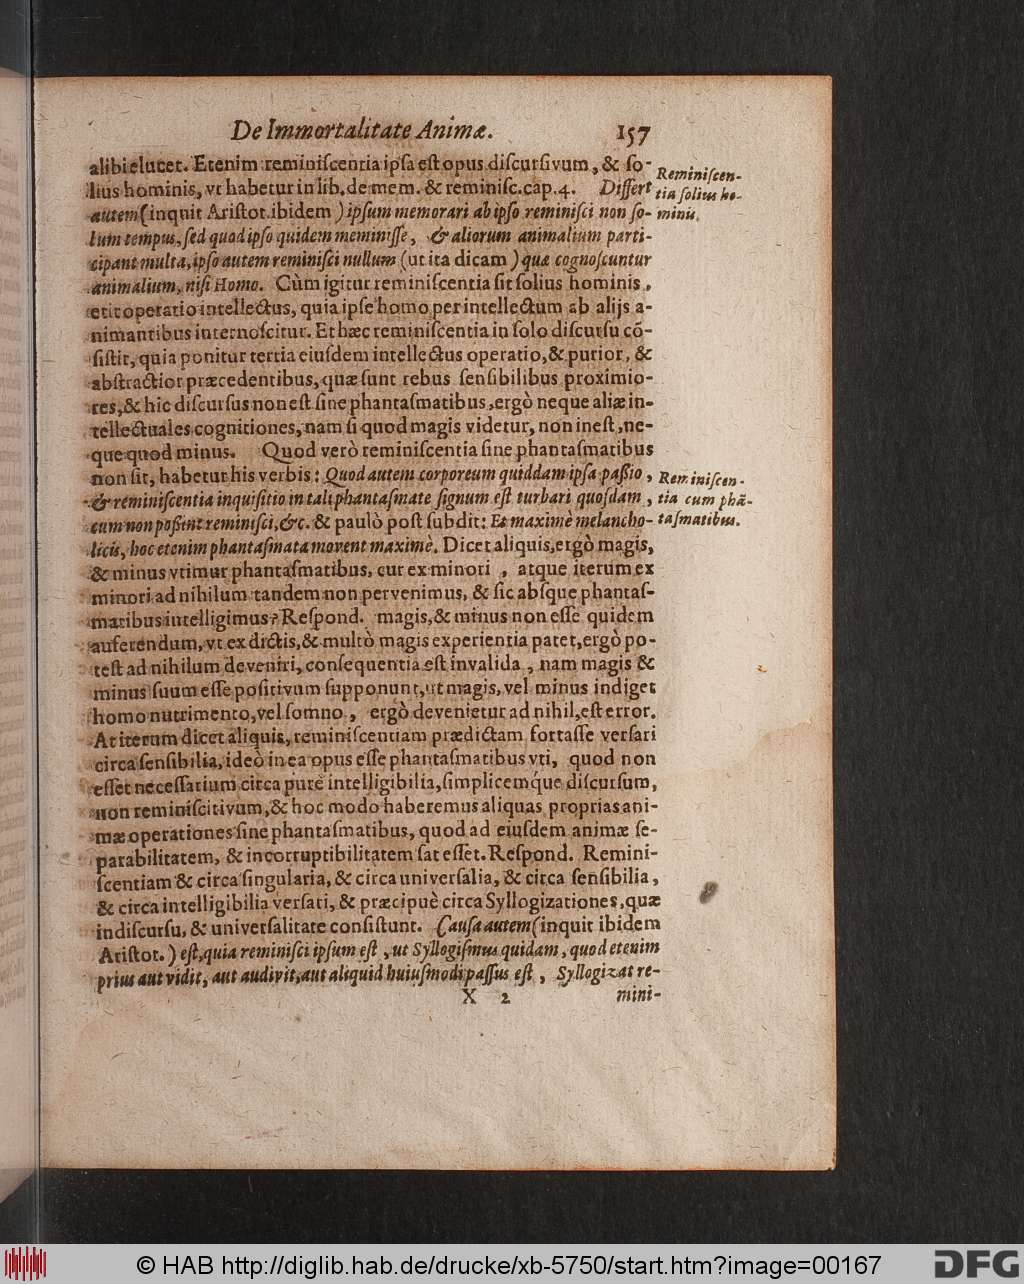 De Immortalitate Animæ. 157
alibi elucet. Etenim reminiſcentia ipſa eſt opus diſcurſivum, & ſo-
lius hominis, vt habetur in lib. de mem. & reminiſc. cap. 4. Differt
autem (inquit Ariſtot. ibidem) ipſum memorari ab ipſo reminiſci non ſo-
lum tempus, ſed quod ipſo quidem meminiſſe, & aliorum animalium parti-
cipant multa, ipſo autem reminiſci nullum (ut ita dicam) quæ cognoſcuntur
animalium, niſi Homo. Cùm igitur reminiſcentia ſit ſolius hominis,
erit operatio intellectus, quia ipſe homo per intellectum ab alijs a-
nimantibus internoſcitur. Et hæc reminiſcentia in ſolo diſcurſu cõ-
ſiſtit, quia ponitur tertia eiuſdem intellectus operatio, & purior, &
abſtractior præcedentibus, quæ ſunt rebus ſenſibilibus proximio-
res, & hic diſcurſus non eſt ſine phantaſmatibus, ergò neque aliæ in-
tellectuales cognitiones, nam ſi quod magis videtur, non ineſt, ne-
que quod minus. Quod verò reminiſcentia ſine phantaſmatibus
non ſit, habetur his verbis: Quod autem corporeum quiddam ipſa paſſio,
& reminiſcentia inquiſitio in tali phantaſmate ſignum eſt turbari quoſdam,
cum non poſſint reminiſci, &c. & paulò poſt ſubdit: Et maximè melancho-
licis, hoc etenim phantaſmata movent maximè. Dicet aliquis, ergò magis,
& minus vtimur phantaſmatibus, cur ex minori, atque iterum ex
minori ad nihilum tandem non pervenimus, & ſic abſque phantaſ-
matibus intelligimus? Reſpond. magis, & minus non eſſe quidem
auferendum, vt ex dictis, & multò magis experientia patet, ergò po-
teſt ad nihilum deveniri, conſequentia eſt invalida, nam magis &
minus ſuum eſſe poſitivum ſupponunt, ut magis, vel minus indiget
homo nutrimento, vel ſomno, ergò devenietur ad nihil, eſt error.
At iterum dicet aliquis, reminiſcentiam prædictam fortaſſe verſari
circa ſenſibilia, ideò in ea opus eſſe phantaſmatibus vti, quod non
eſſet neceſſarium circa purè intelligibilia, ſimplicemq́ue diſcurſum,
non reminiſcitivum, & hoc modo haberemus aliquas proprias ani-
mæ operationes ſine phantaſmatibus, quod ad eiuſdem animæ ſe-
parabilitatem, & incorruptibilitatem ſat eſſet. Reſpond. Remini-
ſcentiam & circa ſingularia, & circa univerſalia, & circa ſenſibilia,
& circa intelligibilia verſati, & præcipuè circa Syllogizationes, quæ
in diſcurſu, & univerſalitate conſiſtunt. Cauſa autem (inquit ibidem
Ariſtot.) eſt, quia reminiſci ipſum eſt, ut Syllogiſmus quidam, quod etenim
prius aut vidit, aut audivit, aut aliquid huiuſmodi paſſus eſt, Syllogizat re-
X 2 mini-
Reminiſcen-
tia ſolius ho-
minis.
Reminiſcen-
tia cum phã-
taſmatibus.
© HAB http://diglib.hab.de/drucke/xb-5750/start.htm?image=00167
DFG